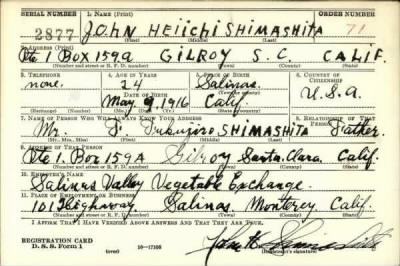 SERIAL NUMBER 1. NAME (Print) ORDER NUMBER
2877 JOHN HEIICHI SHIMASHITA 71
(First) (Middle) (Last)
2. ADDRESS (Print)
Rte 1 Box 159A GILROY S.C. CALIF.
(Number and street or R. F. D. number) (Town) (County) (State)
3. TELEPHONE 4. AGE IN YEARS 5. PLACE OF BIRTH 6. COUNTRY OF CITIZENSHIP
none. 24 Salinas
DATE OF BIRTH (Town or county)
May 9, 1916 Calif. U.S.A.
(Exchange) (Number) (Mo.) (Day) (Yr.) (State or country)
7. NAME OF PERSON WHO WILL ALWAYS KNOW YOUR ADDRESS 8. RELATIONSHIP OF THAT PERSON
Mr. SHIMASHITA Father
(Mr., Mrs., Miss) (First) (Middle) (Last)
9. ADDRESS OF THAT PERSON
Rte 1. Box 159A Gilroy Santa Clara. Calif.
(Number and street or R. F. D. number) (Town) (County) (State)
10. EMPLOYER'S NAME
Salinas Valley Vegetable Exchange.
11. PLACE OF EMPLOYMENT OR BUSINESS
101 Highway Salinas. Monterey Calif.
(Number and street or R. F. D. number) (Town) (County) (State)
I AFFIRM THAT I HAVE VERIFIED ABOVE ANSWERS AND THAT THEY ARE TRUE.
REGISTRATION CARD
D. S. S. Form 1 (over) 16—17105 John H. Shimashita
(Registrant's signature)